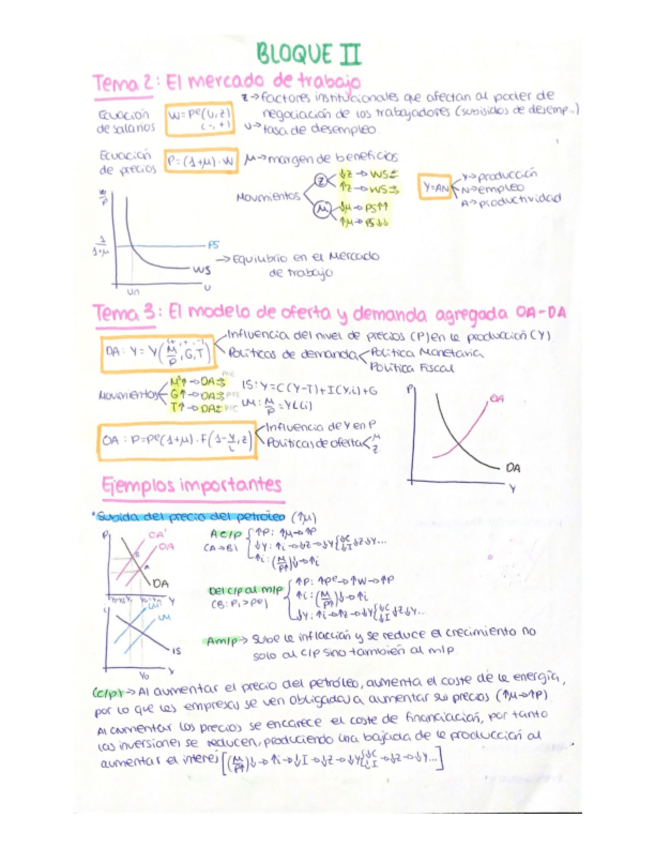 BLOQUE II
Tema 2: El mercado de trabajo
Ecuación de salarios
W=Pᵉ(U,z)
(-,+)
z→factores institucionales que afectan al poder de
negociación de los trabajadores (subsidios de desemp..)
U→tasa de desempleo
Ecuación de precios
P=(1+μ)·W
μ→margen de beneficios
Movimientos
z
↓z→WS
↑z→WS
μ
↓μ→PS↑↑
↑μ→PS↓↓
Y=AN
Y→producción
N→empleo
A→productividad
W/P
1/1+μ
PS
WS
Un
U
→Equilibrio en el Mercado
de trabajo
Tema 3: El modelo de oferta y demanda agregada OA-DA
DA: Y=Y(M/P,G,T)
Influencia del nivel de precios (P) en la producción (Y)
Políticas de demanda
Política Monetaria
Política Fiscal
Movimientos
G↑→DA
T↑→DA
IS: Y=C(Y-T)+I(Y,i)+G
LM: M/P=YL(i)
OA: P=Pᵉ(1+μ)·F(1-Y/L,z)
Influencia de Y en P
Políticas de oferta
μ
z
P
OA
DA
Y
Ejemplos importantes
*Subida del precio del petróleo (↑μ)
P
OA'
OA
DA
Y
LM
IS
Y
A C/P
(A→B)
↑P: ↑μ→↑P
Del c/p al m/p
(B: P₁>Pᵉ)
↑P: ↑Pᵉ→↑W→↑P
↑i: (M/P↑)↓→↑i
A m/p→ Sube la inflación y se reduce el crecimiento no
solo al c/p sino también al m/p
(c/p)→Al aumentar el precio del petróleo, aumenta el coste de la energía,
por lo que las empresas se ven obligadas a aumentar sus precios (↑μ→↑P)
Al aumentar los precios se encarece el coste de financiación, por tanto
las inversiones se reducen, produciendo una bajada de la producción al
aumentar el interés